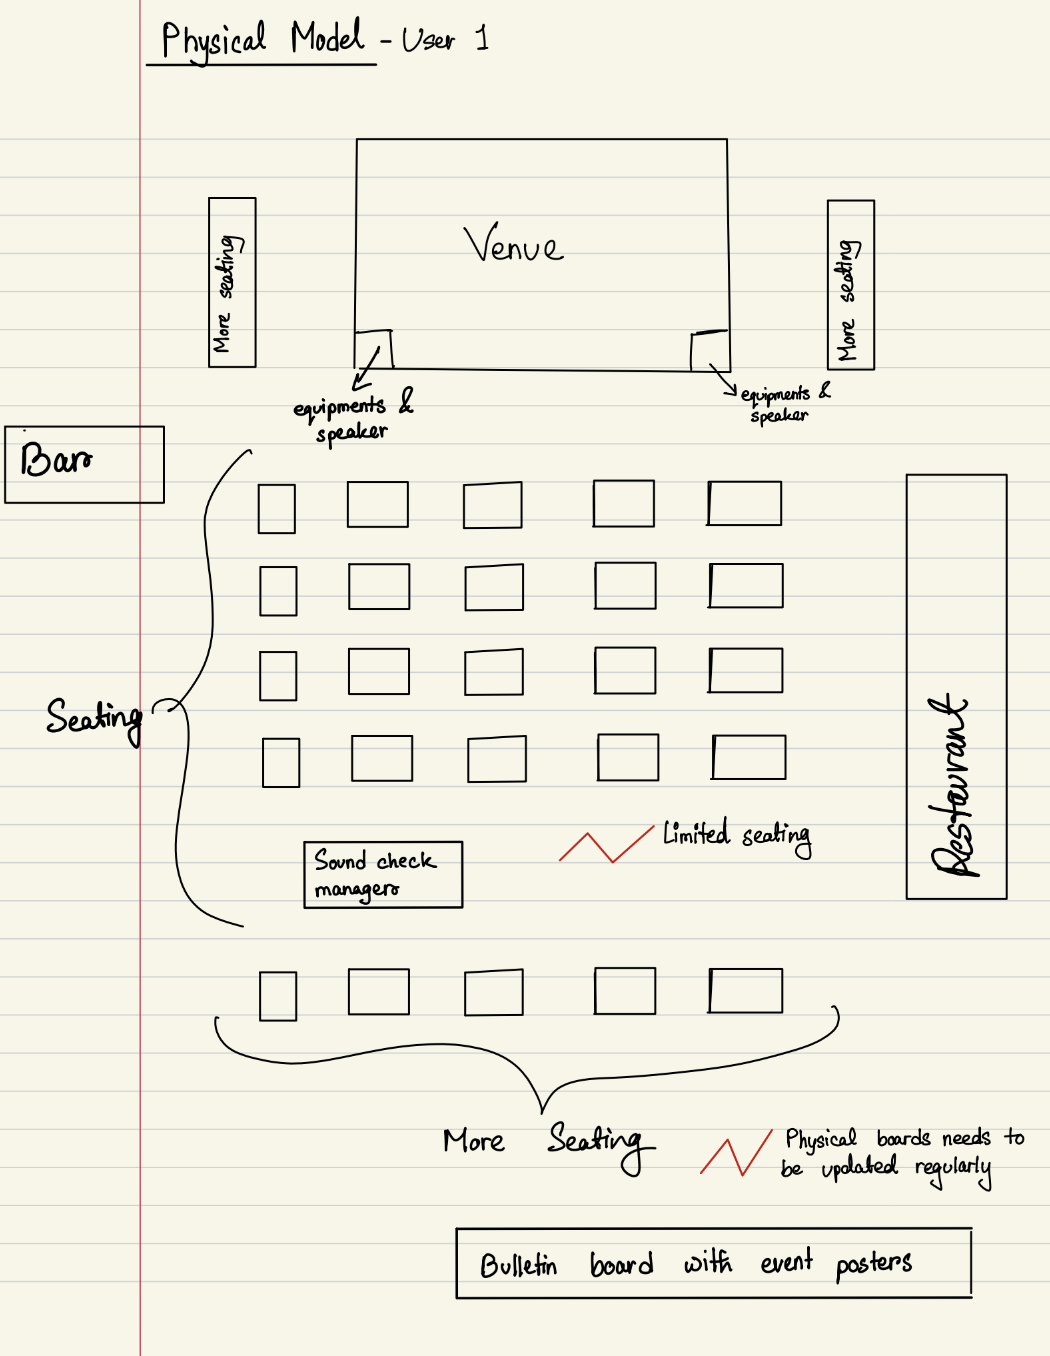 Physical Model - User 1
Venue
More seating
More seating
equipments &
speaker
equipments &
speaker
Bar
Seating
Restaurant
Limited seating
Sound check
managers
More Seating
Physical boards needs to
be updated regularly
Bulletin board with event posters